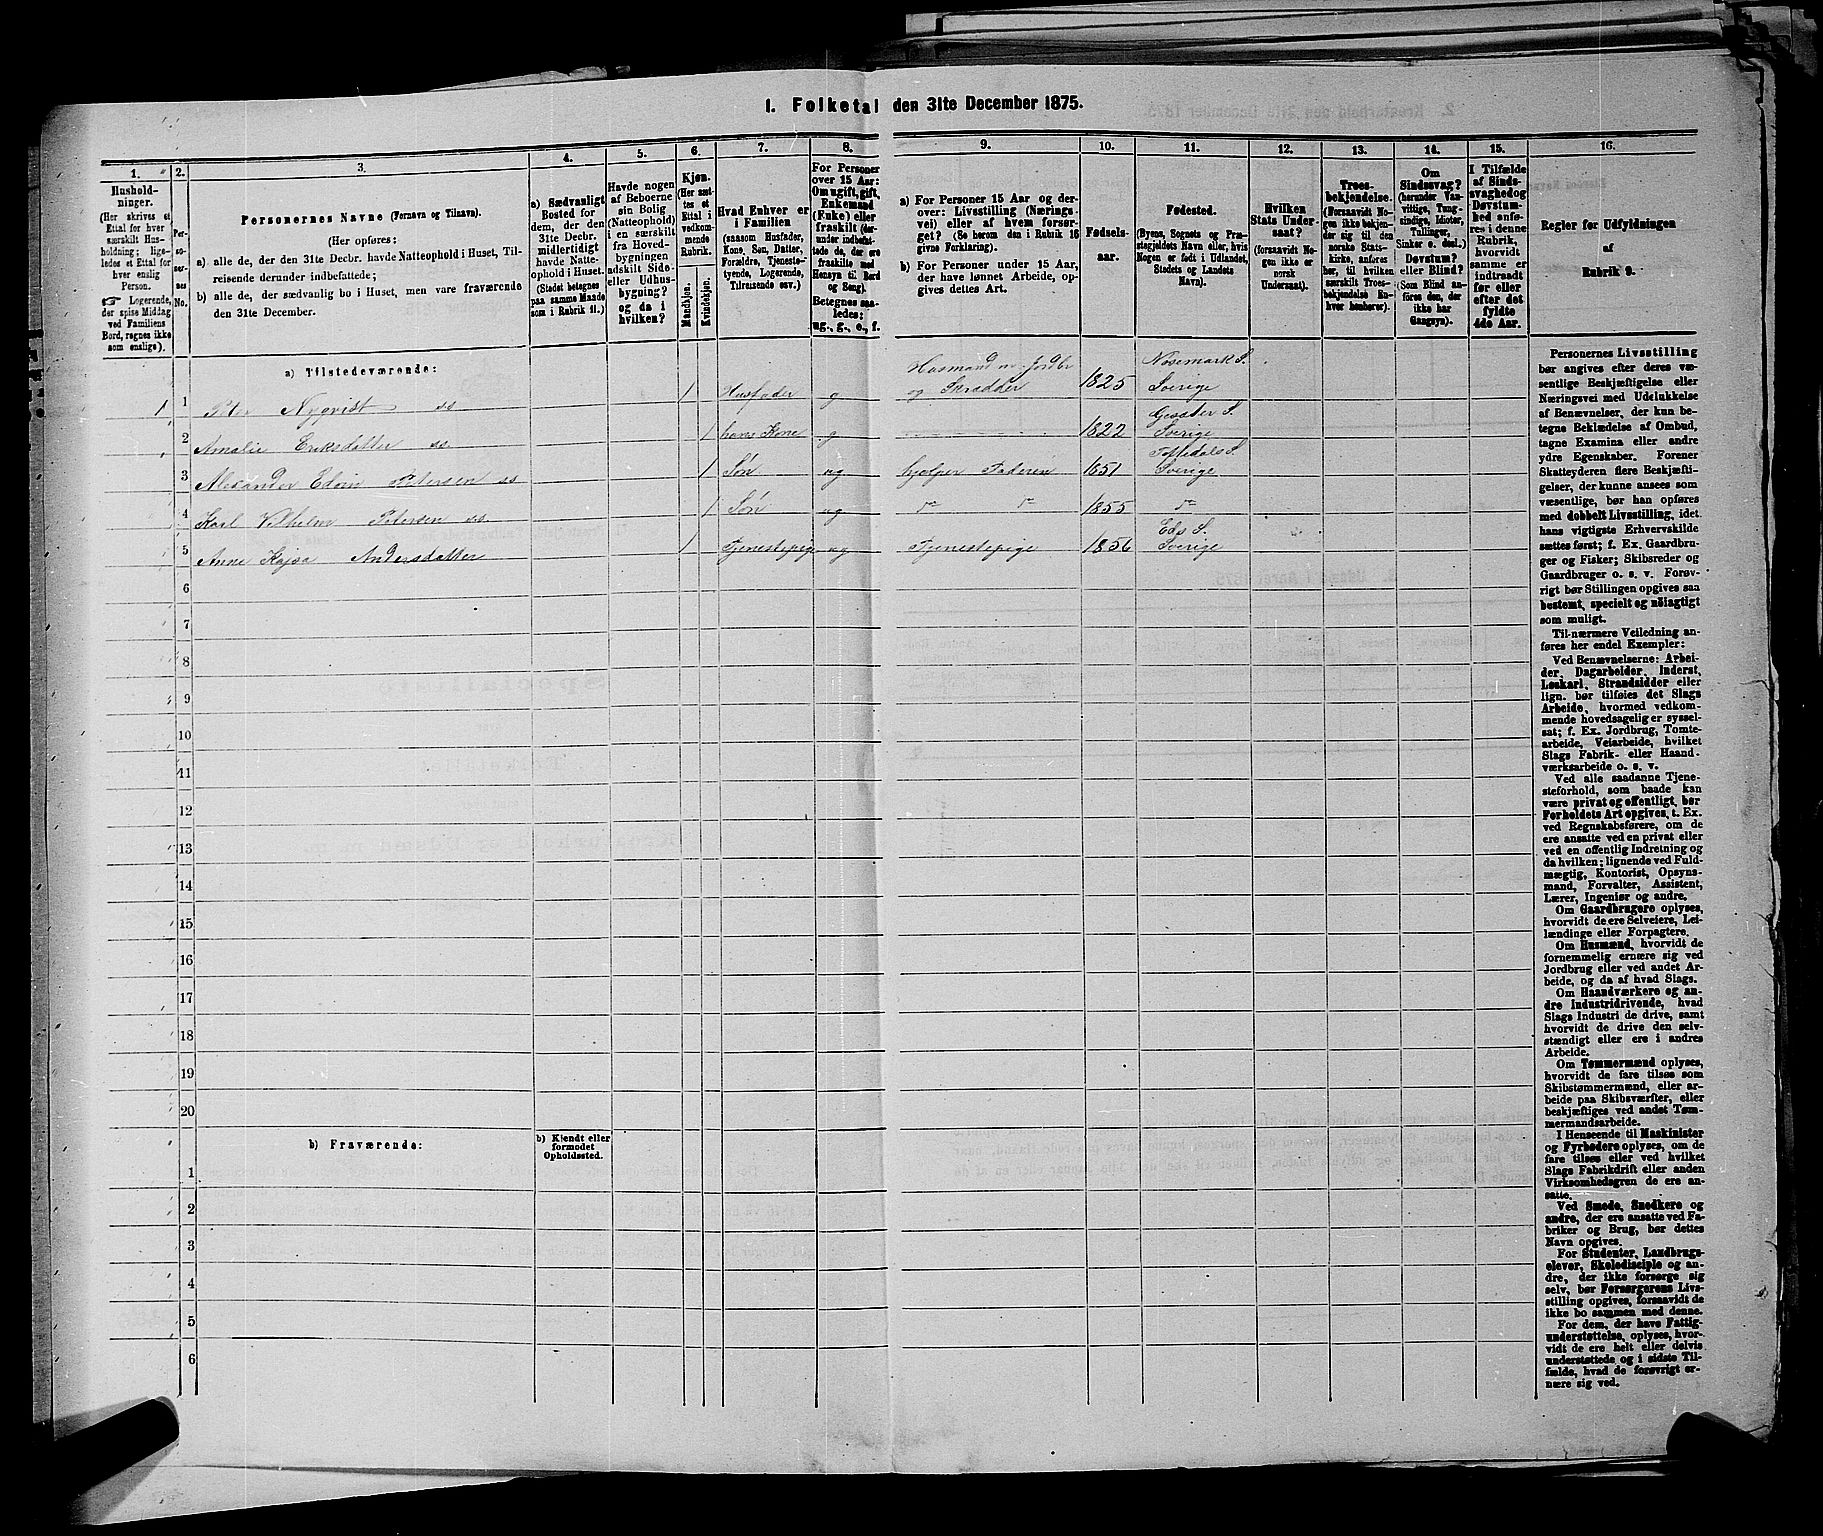 1. Folketal den 31te December 1875.
1.
Hushold-
ninger.
(Her skrives et
Ettal for hver
særskilt Hus-
holdning; lige-
ledes et Ettal for
hver enslig
Person.
☞ Logerende,
der spise Middag
ved Familiens
Bord, regnes ikke
som enslige).
2.
Per-
so-
ner-
nes
No.
3.
Personernes Navne (Fornavn og Tilnavn).
(Her opføres:
a) alle de, der den 31te Decbr. havde Natteophold i Huset, Til-
reisende derunder indbefattede;
b) alle de, der sædvanlig bo i Huset, men vare fraværende
den 31te December.
4.
a) Sædvanligt
Bosted for
dem, der den
31te Decbr.
midlertidigt
havde Natte-
ophold i Huset.
(Stedet betegnes
paa samme Maade
som i Rubrik 11.)
5.
Havde nogen
af Beboerne
sin Bolig
(Natteophold)
i en særskilt
fra Hoved-
bygningen
adskilt Side-
eller Udhus-
bygning?
og da i
hvilken?
6.
Kjøn.
(Her sæt-
tes et
Ettal i
vedkom-
mende
Rubrik.
Mandkjøn.
Kvindekjøn.
7.
Hvad Enhver er
i Familien
(saasom Husfader,
Kone, Søn, Datter,
Forældre, Tjeneste-
tyende, Logerende,
Tilreisende osv.)
8.
For Personer
over 15 Aar:
Om ugift, gift,
Enkemand
(Enke) eller
fraskilt (der-
under indbefat-
tede de, der ere
fraskilte med
Hensyn til Bord
og Seng).
Betegnes saa-
ledes:
ug., g., e., f.
9.
a) For Personer 15 Aar og der-
over: Livsstilling (Nærings-
vei) eller af hvem forsør-
get? (Se herom den i Rubrik 16
givne Forklaring).
b) For Personer under 15 Aar,
der have lønnet Arbeide, op-
gives dettes Art.
10.
Fødsels-
aar.
11.
Fødested.
(Byens, Sognets og Præ-
stegjeldets Navn eller, hvis
Nogen er født i Udlandet,
Stedets og Landets
Navn).
12.
Hvilken
Stats Under-
saat?
(forsaavidt No-
gen ikke er
norsk
Undersaat).
13.
Troes-
bekjendelse.
(Forsaavidt No-
gen ikke bekjen-
der sig til den
norske Stats-
kirke, anføres
her, til hvilken
særskilt Troes-
bekjendelse En-
hver henhører).
14.
Om
Sindssvag?
(herunder Van-
vittige, Tung-
sindige, Idioter,
Tullinger,
Sinker o. desl.)
Døvstum?
eller Blind?
(Som Blind an-
føres den, der
ikke har
Gangsyn).
15.
I Tilfælde
af Sinds-
svaghed og
Døvstum-
hed anfø-
res i denne
Rubrik,
hvorvidt
samme er
indtraadt
før eller
efter det
fyldte
4de Aar.
16.
Regler for Udfyldningen
af
Rubrik 9.
a) Tilstedeværende:
1 1 Peter Nyqvist ss 1 Husfader g Husmand m. Jordbr og Skrædder 1825 Nøsemark S. Sverige
2 Amalie Eriksdatter ss. 1 hans Kone g 1822 Gesæter S. Sverige
3 Alexander Edvin Petersen ss 1 Søn ug hjelper Faderen 1851 Töftedals S. Sverige
4 Karl Vilhelm Petersen ss. 1 Søn ug do do 1855 do
5 Anne Kajsa Andersdatter 1 Tjenestepige ug Tjenestepige 1856 Eds S. Sverige
6
7
8
9
10
11
12
13
14
15
16
17
18
19
20
b) Fraværende:
b) Kjendt eller
formodet
Opholdssted.
1
2
3
4
5
6
Personernes Livsstilling
bør angives efter deres væ-
sentlige Beskjæftigelse eller
Næringsvei med Udelukkelse
af Benævnelser, der kun be-
tegne Beklædelse af Ombud,
tagne Examina eller andre
ydre Egenskaber. Forener
Skatteyderen flere Beskjæfti-
gelser, der kunne ansees som
væsentlige, bør han opføres
med dobbelt Livsstilling, idet
hans vigtigste Erhvervskilde
sættes først; f. Ex. Gaardbru-
ger og Fisker; Skibsreder og
Gaardbruger o. s. v. Forøv-
rigt bør Stillingen opgives saa
bestemt, specielt og nöiagtigt
som muligt.
Til nærmere Veiledning an-
føres her endel Exempler:
Ved Benævnelserne: Arbei-
der, Dagarbeider, Inderst,
Løskarl, Strandsidder eller
lign. bør tilføies det Slags
Arbeide, hvormed vedkom-
mende hovedsagelig er syssel-
sat; f. Ex. Jordbrug, Tomte-
arbeide, Veiarbeide, hvilket
Slags Fabrik- eller Haand-
værksarbeide o. s. v.
Ved alle saadanne Tjene-
steforhold, som baade kan
være privat og offentligt, bør
Forholdets Art opgives, t. Ex.
ved Regnskabsførere, om de
ere ansatte ved en privat eller
ved en offentlig Indretning og
da hvilken; lignende ved Fuld-
mægtig, Kontorist, Opsyns-
mand, Forvalter, Assistent,
Lærer, Ingeniør og andre.
Om Gaardbrugere oplyses,
hvorvidt de ere Selveiere, Lei-
lændinge eller Forpagtere.
Om Husmænd, hvorvidt de
fornemmelig ernære sig ved
Jordbrug eller ved andet Ar-
beide, og da af hvad Slags.
Om Haandværkere og an-
dre Industridrivende, hvad
Slags Industri de drive, samt
hvorvidt de drive den selv-
stændigt eller ere i andres
Arbeide.
Om Tømmermænd oplyses,
hvorvidt de fare tilsøs som
Skibstømmermænd, eller ar-
beide paa Skibsværfter, eller
beskjæftiges ved andet Tøm-
mermandsarbeide.
I Henseende til Maskinister
og Fyrbødere oplyses, om de
fare tilsøs eller ved hvilket
Slags Fabrikdrift eller anden
Virksomhedsgren de ere an-
satte.
Ved Smede, Snedkere og
andre, der ere ansatte ved Fa-
briker og Brug, bør dettes
Navn opgives.
For Studenter, Landbrugs-
elever, Skoledisciple og an-
dre, der ikke forsørge sig
selv, bør Forsørgerens Livs-
stilling opgives, forsaavidt de
ikke bo sammen med denne.
For dem, der have Fattig-
understøttelse, oplyses, hvor-
vidt de ere helt eller delvis
understøttede og i sidste Til-
fælde, hvad de forøvrigt er-
nære sig ved.